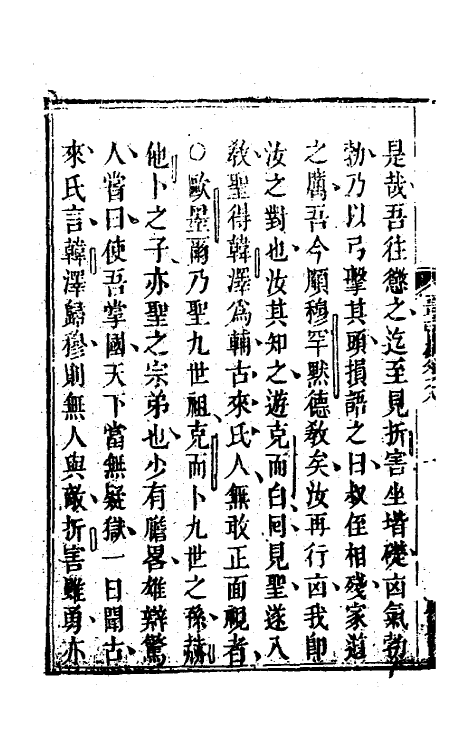 是哉吾往懲之迄至見折害坐墻礎凶氣勃
勃乃以弓擊其頭損語之曰叔侄相殘家道
之厲吾今順穆罕默德教矣汝再行凶我即
汝之對也汝其知之遊克而白囘見聖遂入
教聖得韓澤為輔古來氏人無敢正面視者
○歐墨爾乃聖九世祖克而卜九世之孫赫
他卜之子亦聖之宗弟也少有膽畧雄辯驚
人嘗曰使吾掌國天下當無疑獄一日聞古
來氏言韓澤歸穆則無人與敵折害雖勇亦